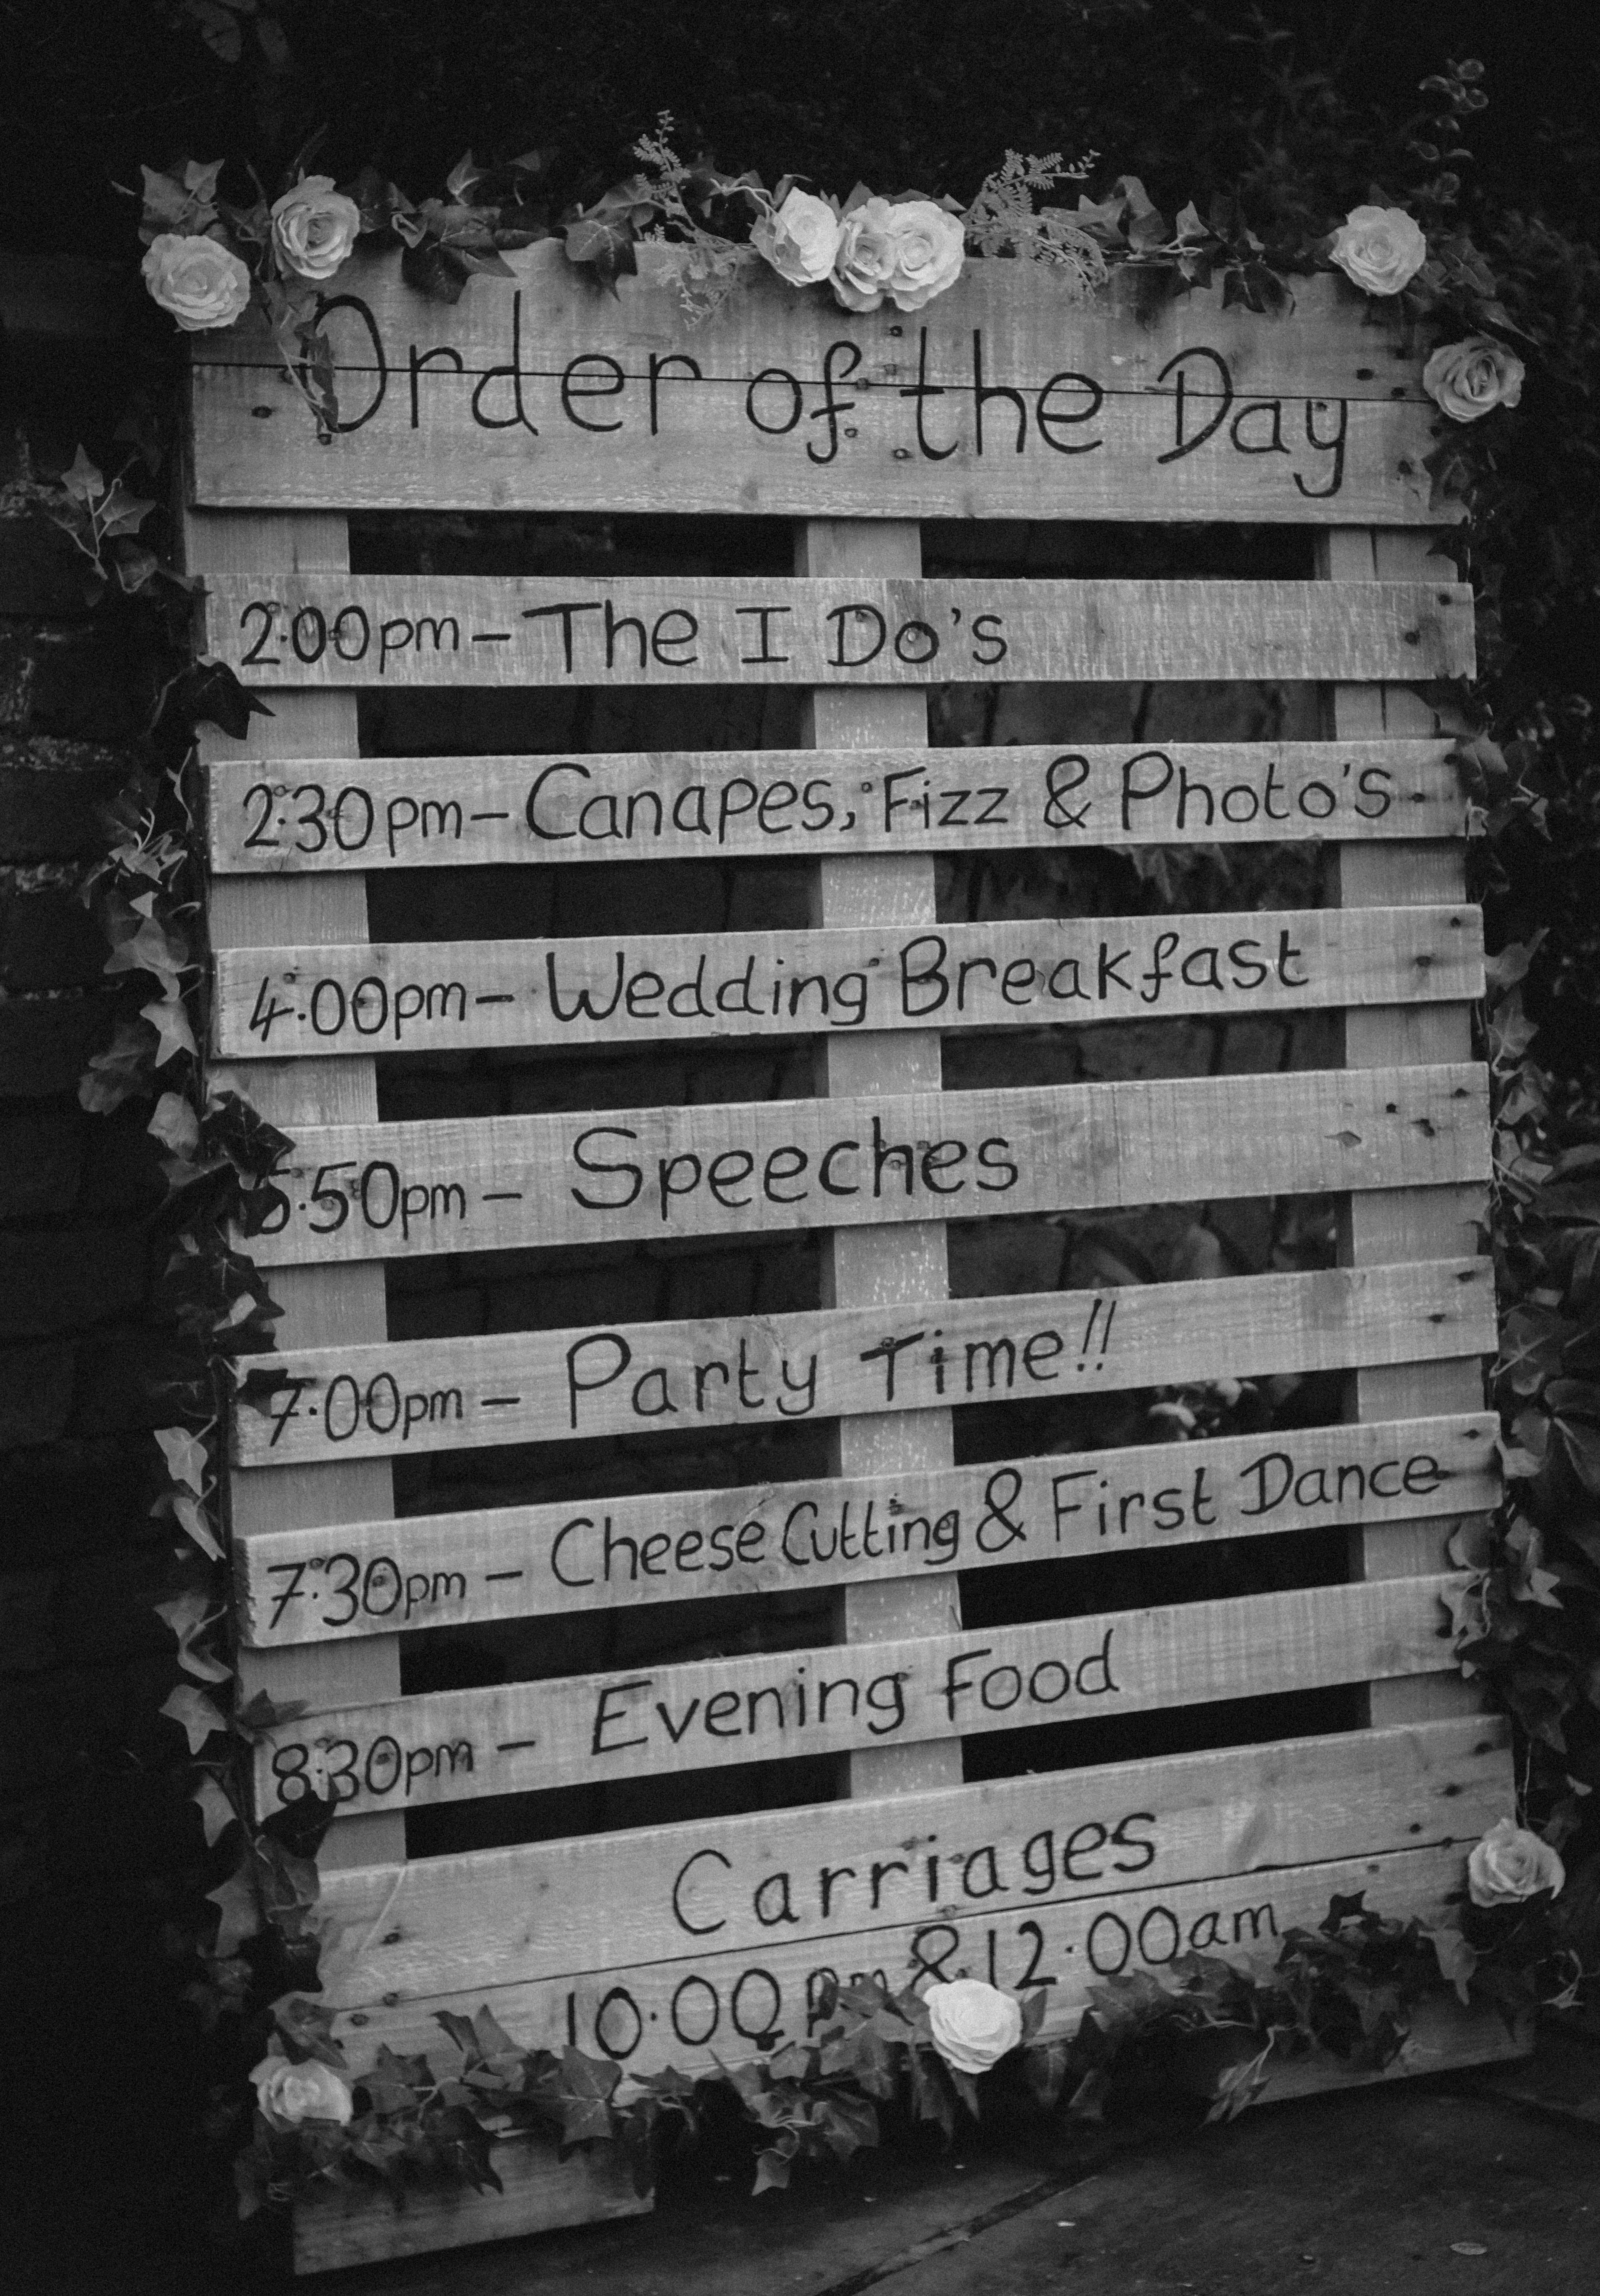 Order of the Day
2.00pm - The I Do's
2.30pm - Canapes, Fizz & Photo's
4.00pm - Wedding Breakfast
5.50pm - Speeches
7.00pm - Party Time!!
7.30pm - Cheese Cutting & First Dance
8.30pm - Evening Food
Carriages
10.00pm & 12.00am